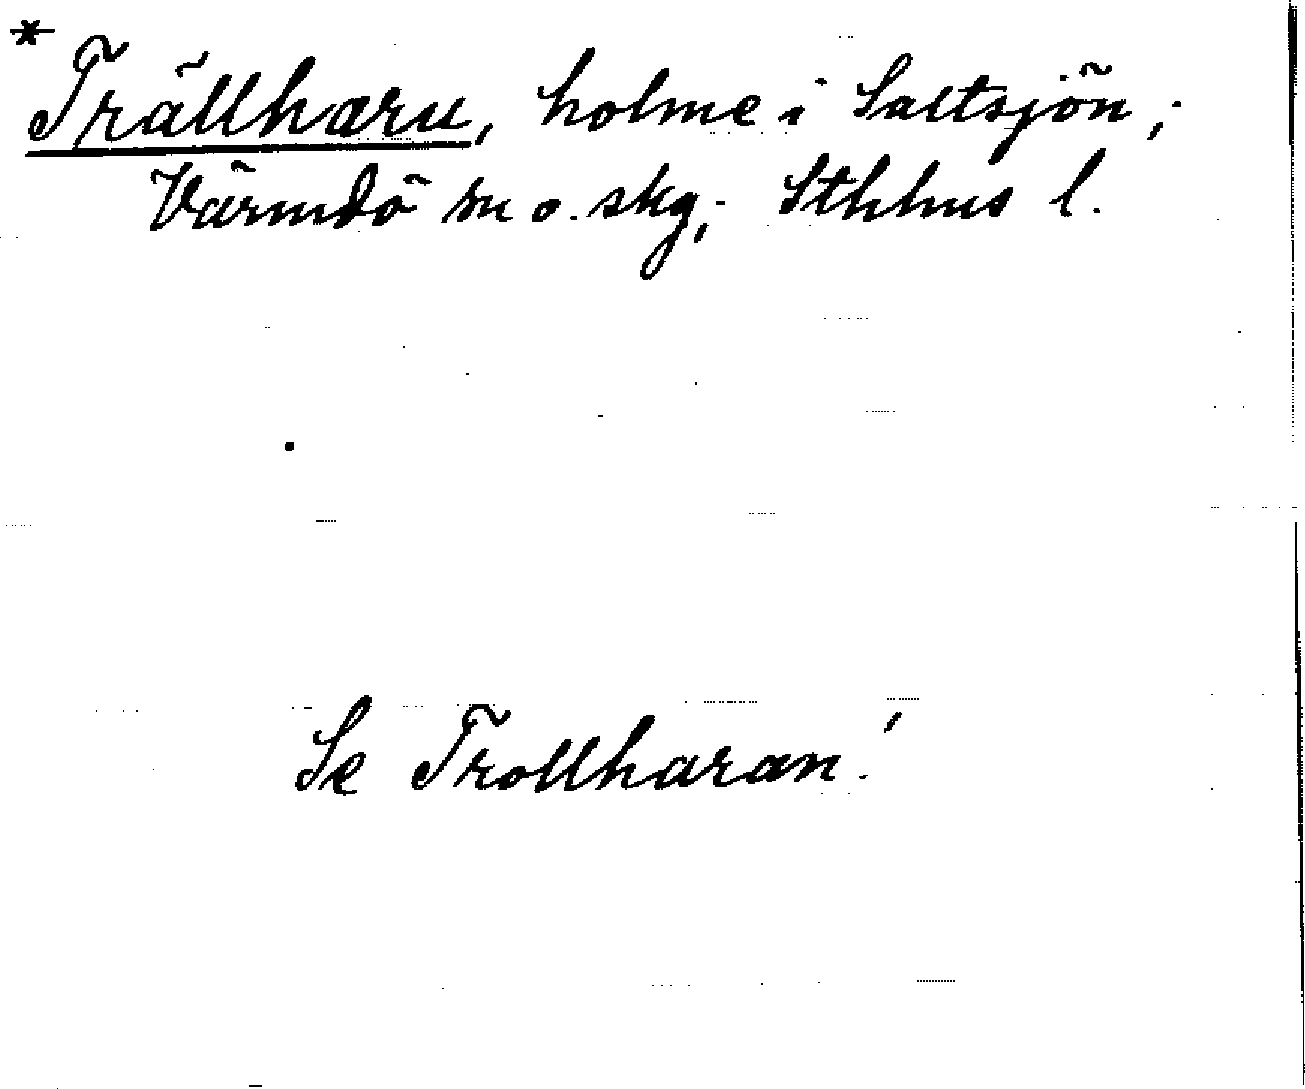 * Trällharu, holme i Saltsjön,
Värmdö sn o. skg, Sthhus l.
Se Trollharan!